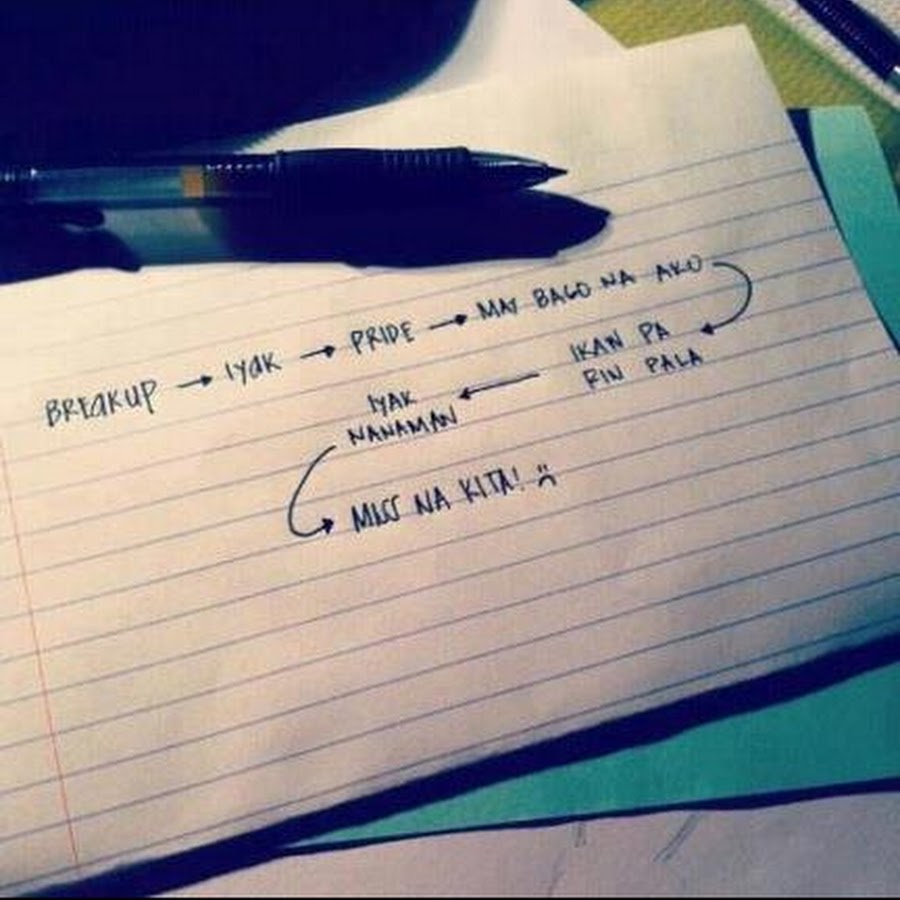 BREAKUP → IYAK → PRIDE → MAY BAGO NA AKO
IKAW PA
RIN PALA
IYAK
NANAMAN
MISS NA KITA! :(